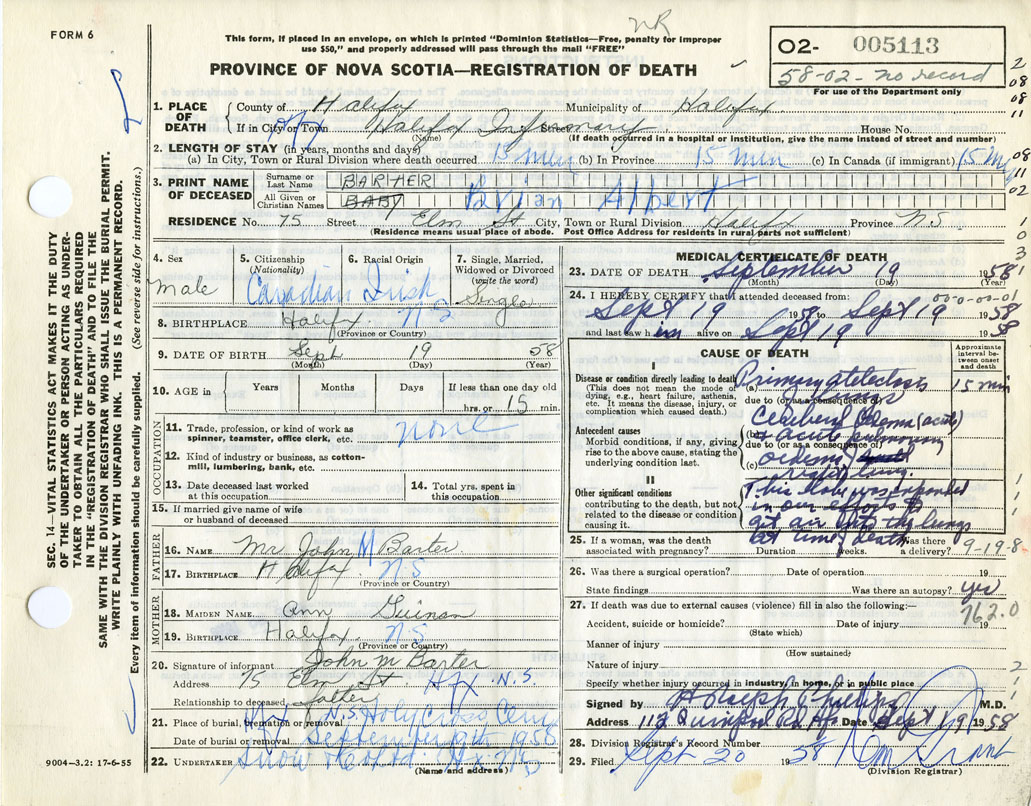 FORM 6
NR
This form, if placed in an envelope, on which is printed "Dominion Statistics—Free, penalty for improper
use $50," and properly addressed will pass through the mail "FREE"
O2- 005113
58-02- no record
For use of the Department only
PROVINCE OF NOVA SCOTIA—REGISTRATION OF DEATH
1. PLACE OF DEATH
County of Halifax Municipality of Halifax
If in City or Town Hfx Halifax Infirmary Street House No.
(Name) (If death occurred in a hospital or institution, give the name instead of street and number)
2. LENGTH OF STAY (in years, months and days)
(a) In City, Town or Rural Division where death occurred 15 min (b) In Province 15 min (c) In Canada (if immigrant) 15 min
3. PRINT NAME OF DECEASED
Surname or Last Name BARTER
All Given or Christian Names BABY Brian Albert
RESIDENCE No. 75 Street Elm St City, Town or Rural Division Halifax Province N.S
(Residence means usual place of abode. Post Office Address for residents in rural parts not sufficient)
4. Sex
male
5. Citizenship (Nationality)
Canadian
6. Racial Origin
Irish
7. Single, Married, Widowed or Divorced (write the word)
Single
8. BIRTHPLACE Halifax N S
(Province or Country)
9. DATE OF BIRTH Sept 19 58
(Month) (Day) (Year)
10. AGE in Years Months Days If less than one day old
hrs. or 15 min.
OCCUPATION
11. Trade, profession, or kind of work as spinner, teamster, office clerk, etc. none
12. Kind of industry or business, as cotton-mill, lumbering, bank, etc.
13. Date deceased last worked at this occupation
14. Total yrs. spent in this occupation
15. If married give name of wife or husband of deceased
FATHER
16. NAME Mr John M Barter
17. BIRTHPLACE Halifax N S
(Province or Country)
MOTHER
18. MAIDEN NAME Ann Guinan
19. BIRTHPLACE Halifax N S
(Province or Country)
20. Signature of informant John M Barter
Address 75 Elm St Hfx N.S.
Relationship to deceased father
21. Place of burial, cremation or removal Hfx N.S. Holy Cross Cem
Date of burial or removal September 19th 1958
22. UNDERTAKER Snow & Co Ltd Hfx N.S
(Name and address)
9004—3.2: 17-6-55
MEDICAL CERTIFICATE OF DEATH
23. DATE OF DEATH September 19 1958
(Month) (Day) (Year)
24. I HEREBY CERTIFY that I attended deceased from: 00-0-00-01
Sept 19 1958 to Sept 19 1958
and last saw him alive on Sept 19 1958
CAUSE OF DEATH
Approximate interval between onset and death
I
Disease or condition directly leading to death
(This does not mean the mode of dying, e.g., heart failure, asthenia, etc. It means the disease, injury, or complication which caused death.)
(a) Primary atelectasis 15 min
due to (or as a consequence of)
Antecedent causes
Morbid conditions, if any, giving rise to the above cause, stating the underlying condition last.
(b) Cerebral Edema (acute)
& acute pulmonary
due to (or as a consequence of)
(c) oedema
right lung.
II
Other significant conditions
contributing to the death, but not related to the disease or condition causing it.
This baby was expanded
in our efforts to
get air into the lungs
at time of death
25. If a woman, was the death associated with pregnancy? Duration weeks. Was there a delivery? 9-19-8
26. Was there a surgical operation? Date of operation 19
State findings Was there an autopsy? yes
27. If death was due to external causes (violence) fill in also the following:—
762.0
Accident, suicide or homicide? Date of injury 19
(State which)
Manner of injury
(How sustained)
Nature of injury
Specify whether injury occurred in industry, in home, or in public place
Signed by M.D.
Address 112 Quinpool Rd Hfx Date Sept 19 1958
28. Division Registrar's Record Number
29. Filed Sept 20 1958
(Division Registrar)
SEC. 14—VITAL STATISTICS ACT MAKES IT THE DUTY
OF THE UNDERTAKER OR PERSON ACTING AS UNDER-
TAKER TO OBTAIN ALL THE PARTICULARS REQUIRED
IN THE "REGISTRATION OF DEATH" AND TO FILE THE
SAME WITH THE DIVISION REGISTRAR WHO SHALL ISSUE THE BURIAL PERMIT.
WRITE PLAINLY WITH UNFADING INK. THIS IS A PERMANENT RECORD.
Every item of information should be carefully supplied. (See reverse side for instructions.)
2
08
08
11
08
11
02
1
0
3
1
1
1
1
2
1